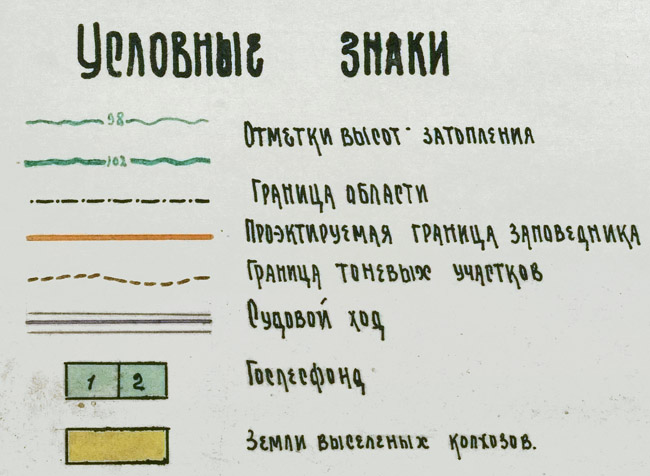 Условные знаки
98
102
Отметки высот затопления
Граница области
Проэктируемая граница заповедника
Граница тоневых участков
Судовой ход
1 2
Гослесфонд
Земли выселеных колхозов.